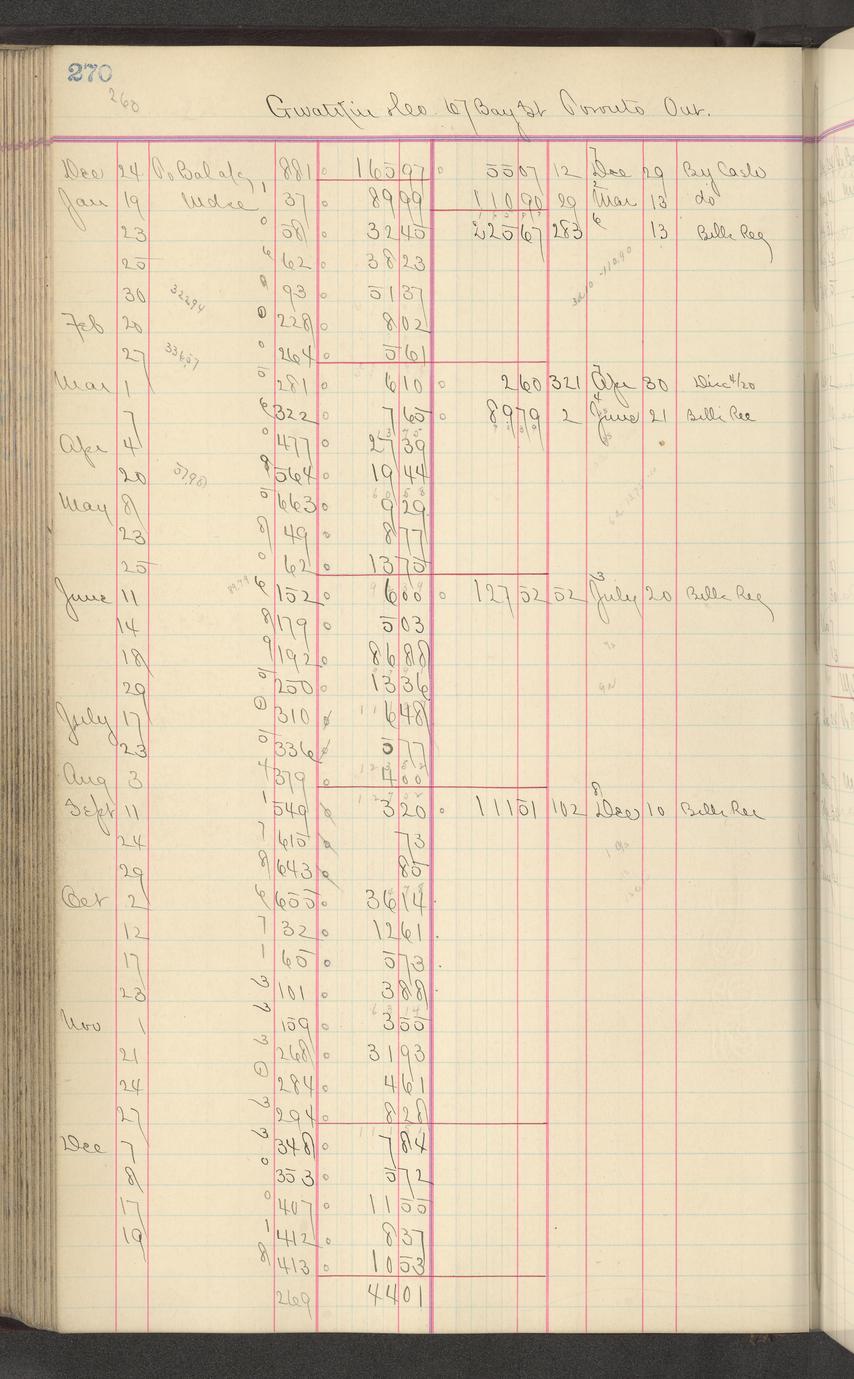 270
260
Gwatkin Geo. 67 Bay St Toronto Ont.
Dec 24 To Bal a/c 881 165 97 55 07 12 Dec 29 By Cash
Jan 19 Mdse 1 37 89 99 110 90 29 Mar 13 do
23 0 58 32 45 225 67 283 6 13 Bills Rec
25 6 62 38 23
30 322 94 9 93 51 37
Feb 20 0 228 8 02
27 336 57 0 264 5 61
Mar 1 5 281 6 10 2 60 321 Apr 30 Disc 4/20
7 6 322 7 65 89 79 2 June 21 Bills Rec
Apr 4 0 477 27 39
20 57 98 8 564 19 44
May 8 5 663 9 29
23 8 49 8 77
25 0 62 13 75
June 11 89 79 6 152 6 00 127 52 52 3 July 20 Bills Rec
14 8 179 5 03
18 9 192 86 88
29 5 250 13 36
July 17 0 310 6 48
23 5 336 5 77
Aug 3 4 379 4 00
Sept 11 1 549 3 20 111 51 102 8 Dec 10 Bills Rec
24 7 615 73
29 8 643 85
Oct 2 6 655 36 14
12 7 32 12 61
17 1 65 5 73
23 3 101 3 88
Nov 1 3 159 3 55
21 3 268 31 93
24 0 284 4 61
27 3 294 8 28
Dec 7 3 348 7 84
8 0 353 5 72
17 0 407 11 55
19 1 412 8 37
8 413 10 53
269 44 01